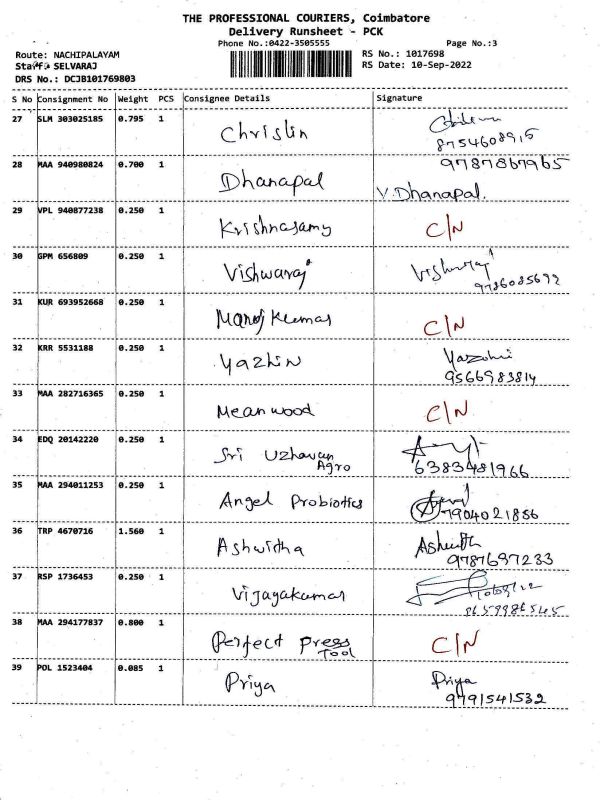 THE PROFESSIONAL COURIERS, Coimbatore
Delivery Runsheet - PCK
Phone No.:0422-3505555 Page No.:3
Route: NACHIPALAYAM RS No.: 1017698
Staff: SELVARAJ RS Date: 10-Sep-2022
DRS No.: DCJB101769803
S No Consignment No Weight PCS Consignee Details Signature
27 SLM 303025185 0.795 1 Chrislin
8754608915
28 MAA 940980824 0.700 1 Dhanapal 9787867965
V. Dhanapal.
29 VPL 940877238 0.250 1 Krishnasamy C/N
30 GPM 656809 0.250 1 Vishwaraj Vishwaraj
9786085692
31 KUR 693952668 0.250 1 Manoj Kumar C/N
32 KRR 5531188 0.250 1 Yazhin Yazhini
9566983814
33 MAA 282716365 0.250 1 Meanwood C/N
34 EDQ 20142220 0.250 1 Sri Uzhavan
Agro 6383481966
35 MAA 294011253 0.250 1 Angel Probiotics
7904021856
36 TRP 4670716 1.560 1 Ashwitha Ashwith
9787697233
37 RSP 1736453 0.250 1 Vijayakumar
38 MAA 294177837 0.800 1 Perfect Press
Tool C/N
39 POL 1523404 0.085 1 Priya Priya
9791541532